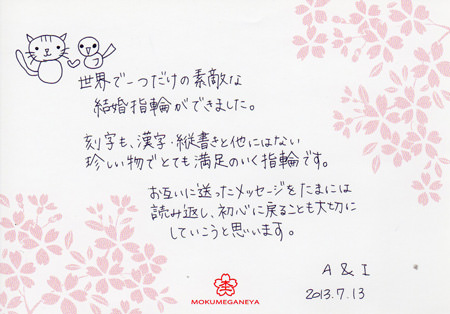 世界で一つだけの素敵な
結婚指輪ができました。
刻字も、漢字・縦書きと他にはない
珍しい物でとても満足のいく指輪です。
お互いに送ったメッセージをたまには
読み返し、初心に戻ることも大切に
していこうと思います。
A & I
2013.7.13
MOKUMEGANEYA